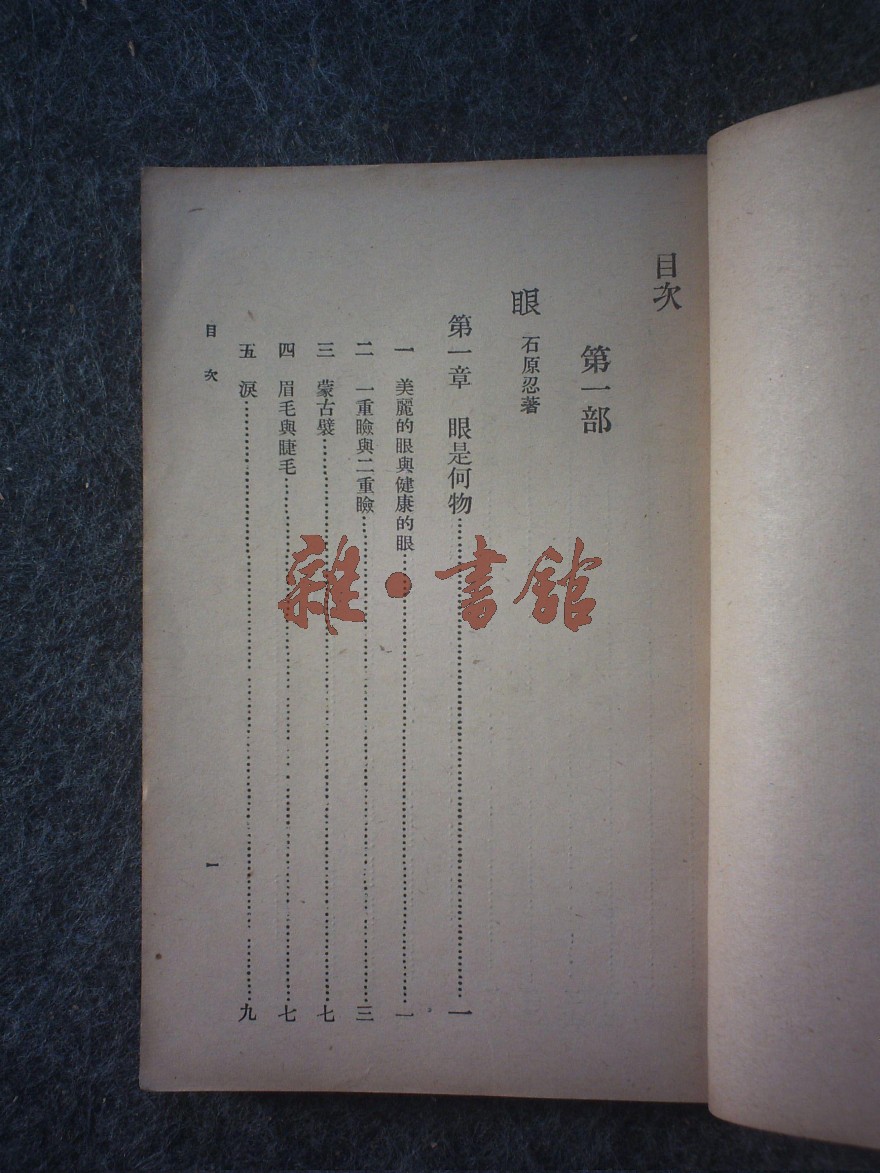 目次
第一部
眼　石原忍著
第一章　眼是何物……一
一　美麗的眼與健康的眼……一
二　一重瞼與二重瞼……三
三　蒙古襞……七
四　眉毛與睫毛……七
五　淚……九
目次　一
雜·書館